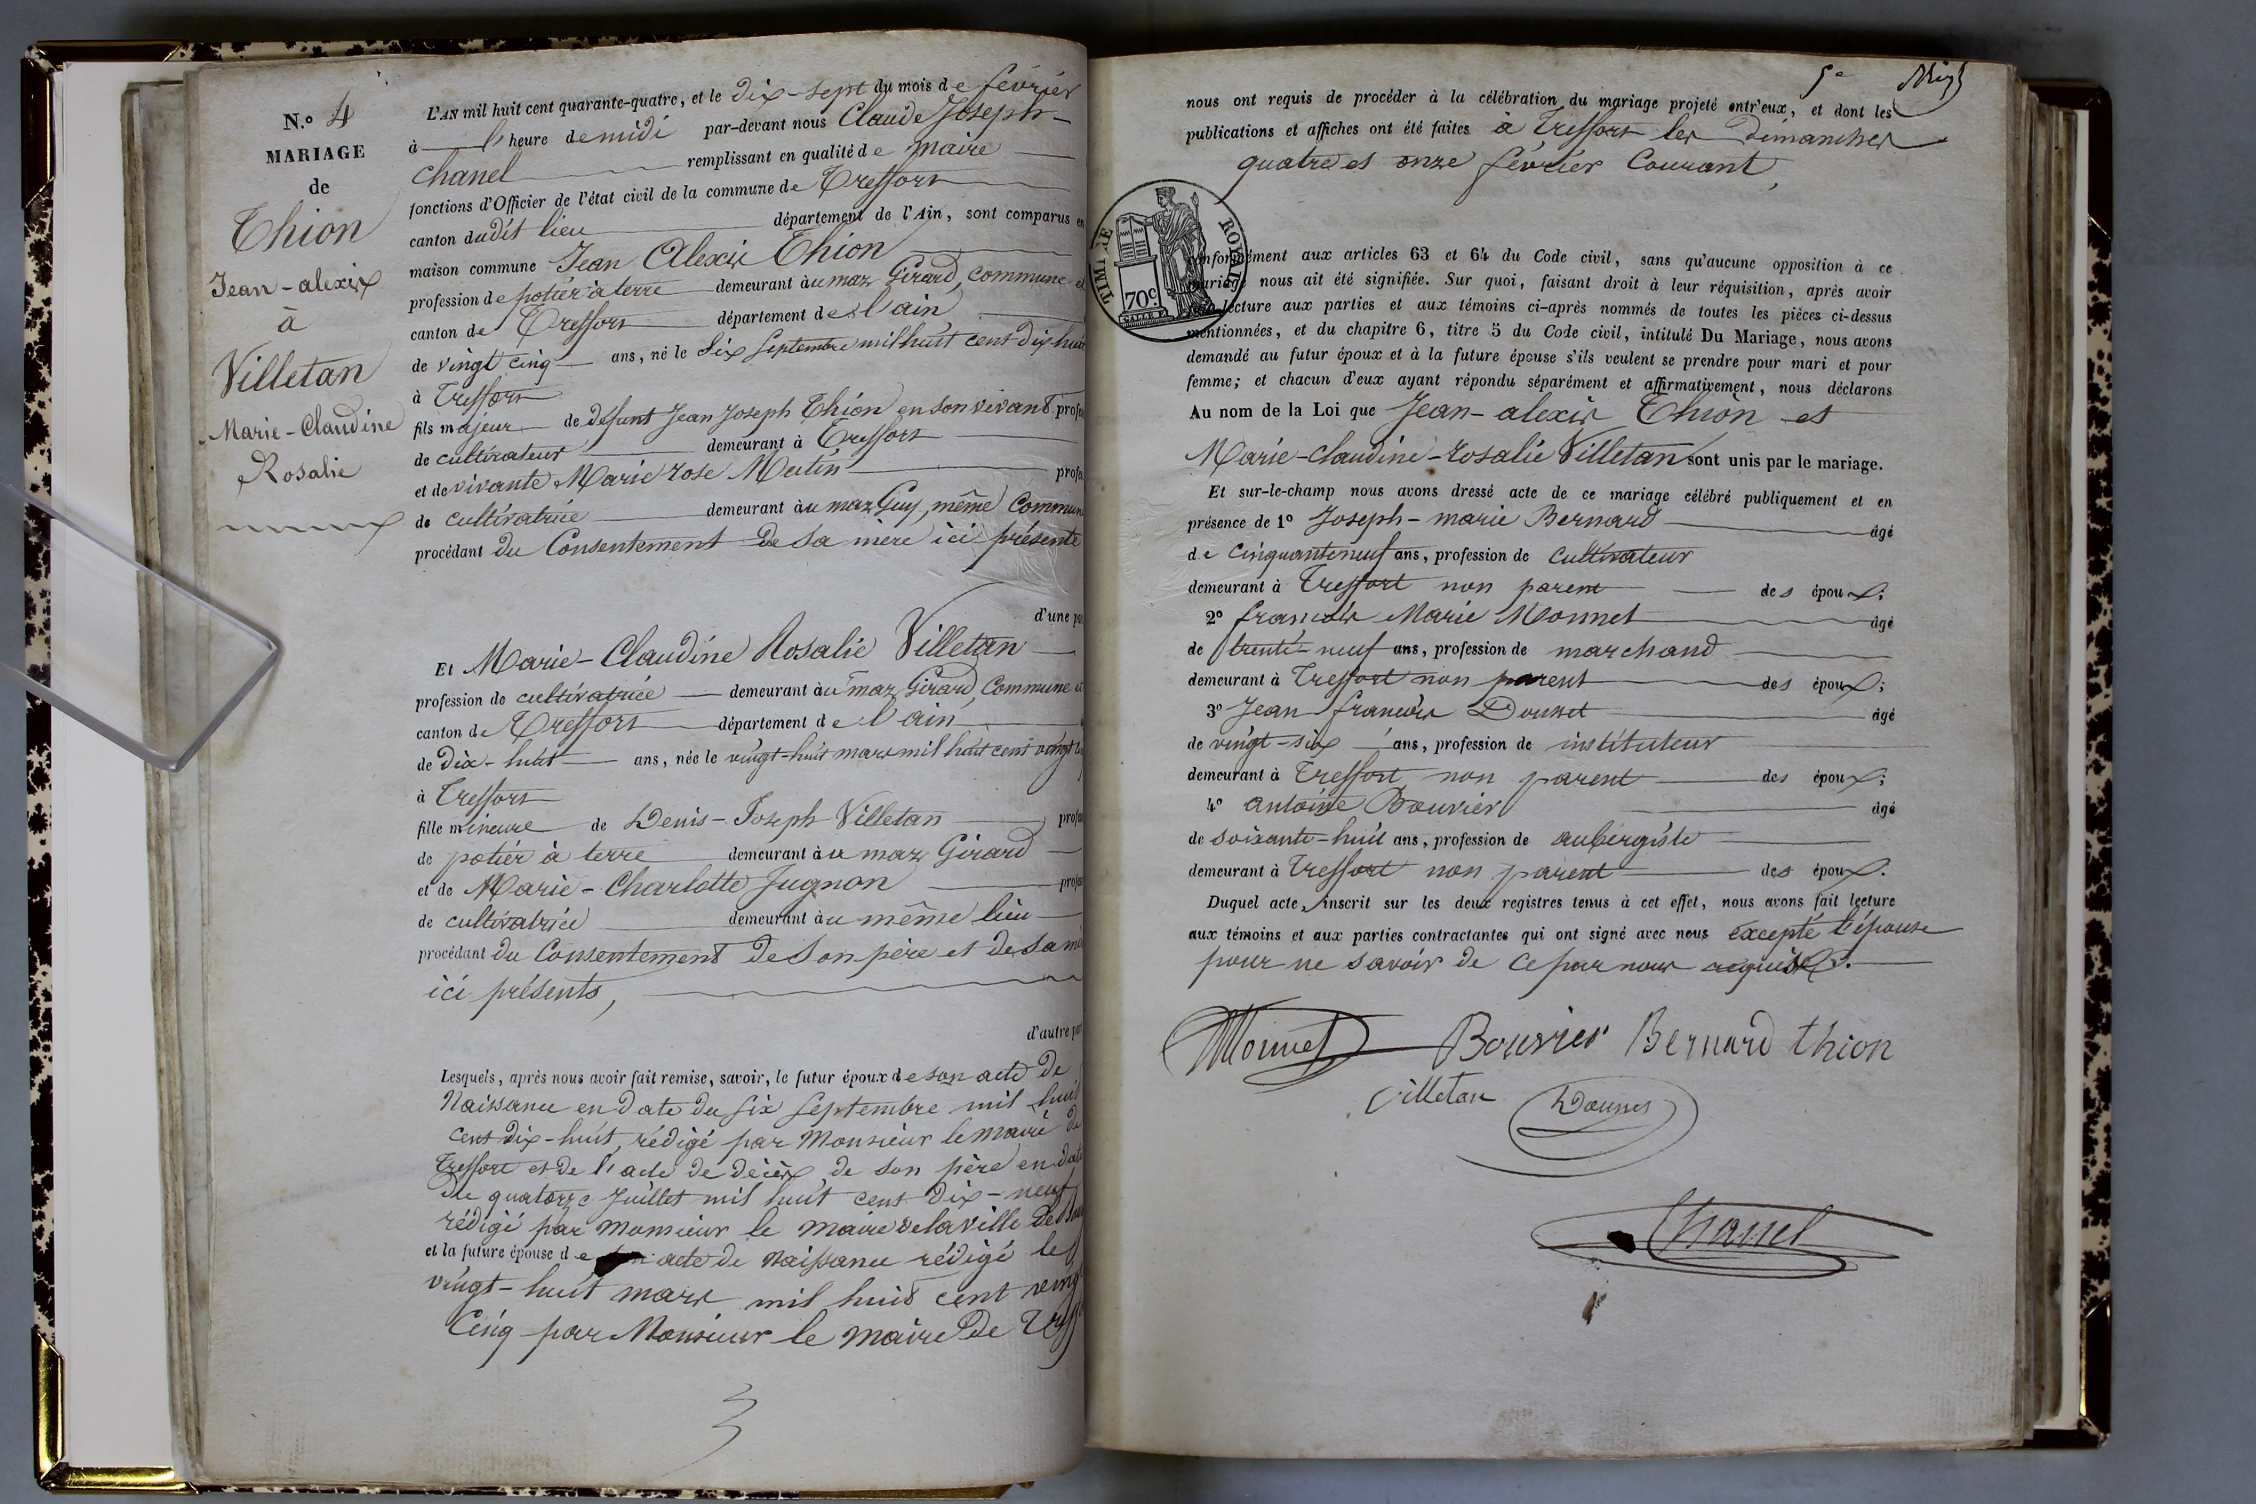 N.o 4
MARIAGE
de
Thion
Jean-alexix
à
Villetan
Marie-Claudine
Rosalie
L'AN mil huit cent quarante-quatre, et le dix-sept du mois de février
à l'heure de midi par-devant nous Claude Joseph
Chanel remplissant en qualité de maire
fonctions d'Officier de l'état civil de la commune de Treffort
canton dudit lieu département de l'Ain, sont comparus en
maison commune Jean Alexis Thion
profession de potier à terre demeurant au maz Girard, commune et
canton de Treffort département de l'ain
de vingt cinq ans, né le Six Septembre mil huit cent dix huit
à Treffort
fils majeur de défunt Jean Joseph Thion en son vivant profes
de cultivateur demeurant à Treffort
et de vivante Marie rose Mutin profes
de cultivatrice demeurant au maz Guy, même Commun
procédant du Consentement de sa mère ici présente
d'une par
Et Marie-Claudine Rosalie Villetan
profession de cultivatrice demeurant au maz Girard, Commune et
canton de Treffort département de l'ain
de dix-huit ans, née le vingt-huit mars mil huit cent vingt
à Treffort
fille mineure de Denis-Joseph Villetan profes
de potier à terre demeurant au maz Girard
et de Marie-Charlotte Jugnon profes
de cultivatrice demeurant au même lieu
procédant du Consentement de Son père et de Sa mè
ici présents,
d'autre part
Lesquels, après nous avoir fait remise, savoir, le futur époux de son acte de
Naissance en date du six Septembre mil huit
cent dix-huit, rédigé par Monsieur le maire de
Treffort et de l'acte de décès de son père en date
du quatorze Juillet mil huit cent dix-neuf
rédigé par Monsieur le Maire de la ville de
et la future épouse de son acte de Naissance rédigé le
vingt-huit mars mil huit cent vingt
Cinq par Monsieur le maire de Treff
5e
nous ont requis de procéder à la célébration du mariage projeté entr'eux, et dont les
publications et affiches ont été faites à Treffort les dimanches
quatre et onze février Courant,
TIMBRE ROYAL
70c
conformément aux articles 63 et 64 du Code civil, sans qu'aucune opposition à ce
mariage nous ait été signifiée. Sur quoi, faisant droit à leur réquisition, après avoir
lecture aux parties et aux témoins ci-après nommés de toutes les pièces ci-dessus
mentionnées, et du chapitre 6, titre 5 du Code civil, intitulé Du Mariage, nous avons
demandé au futur époux et à la future épouse s'ils veulent se prendre pour mari et pour
femme; et chacun d'eux ayant répondu séparément et affirmativement, nous déclarons
Au nom de la Loi que Jean-alexis Thion et
Marie-Claudine-Rosalie Villetan sont unis par le mariage.
Et sur-le-champ nous avons dressé acte de ce mariage célébré publiquement et en
présence de 1o Joseph-marie Bernard âgé
de Cinquante neuf ans, profession de Cultivateur
demeurant à Treffort non parent des époux;
2o françois Marie Monnet âgé
de trente-neuf ans, profession de marchand
demeurant à Treffort non parent des époux;
3o Jean françois Dousset âgé
de vingt-six ans, profession de instituteur
demeurant à Treffort non parent des époux;
4o antoine Bouvier âgé
de soixante-huit ans, profession de aubergiste
demeurant à Treffort non parent des époux.
Duquel acte, inscrit sur les deux registres tenus à cet effet, nous avons fait lecture
aux témoins et aux parties contractantes qui ont signé avec nous excepté l'épouse
pour ne savoir de ce par nous requise.
Monnet Bouvier Bernard thion
villetan
Chanel